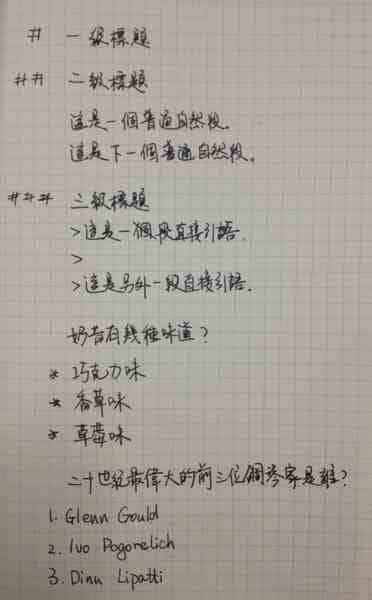 # 一級標題
## 二級標題
這是一個普通自然段。
這是下一個普通自然段。
### 三級標題
>這是一個段直接引語。
>
>這是另外一段直接引語。
奶昔有幾種味道？
* 巧克力味
* 香草味
* 草莓味
二十世紀最偉大的前三位鋼琴家是誰？
1. Glenn Gould
2. Ivo Pogorelich
3. Dinu Lipatti